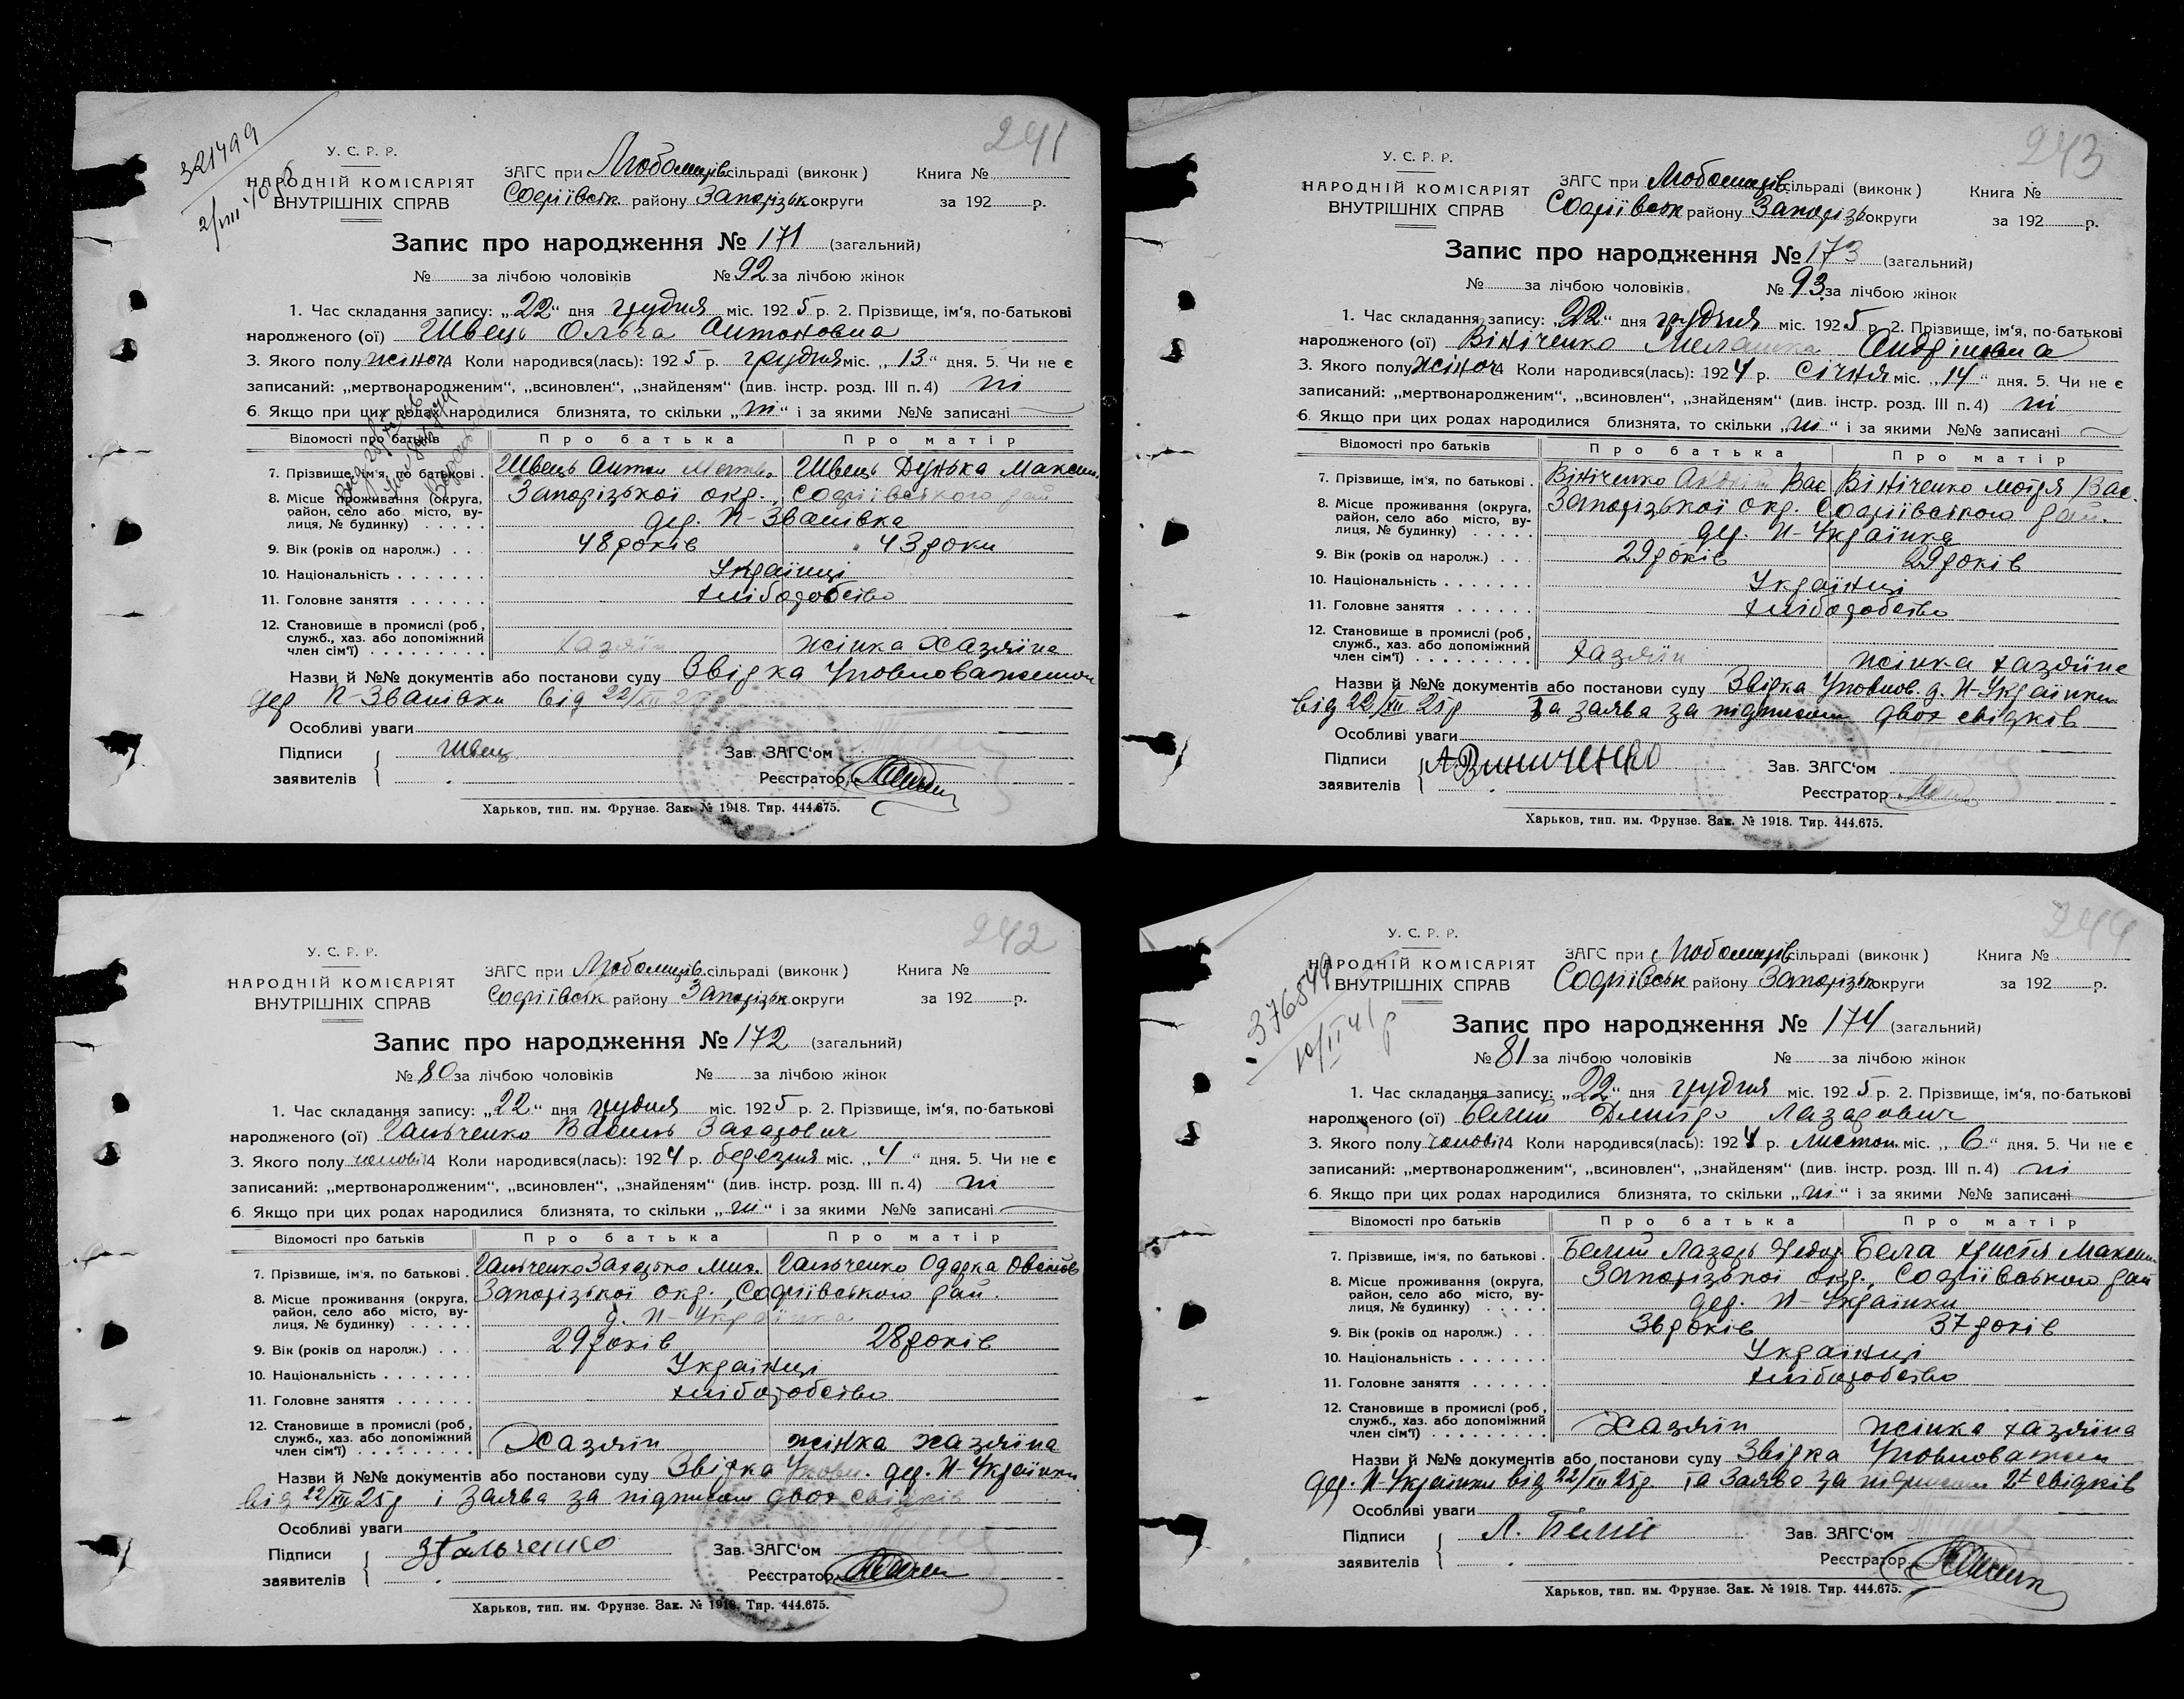 241
321499
У. С. Р. Р.
НАРОДНІЙ КОМІСАРІЯТ
ВНУТРІШНІХ СПРАВ
ЗАГС при Любомирів. сільраді (виконк) Книга №
Софіївськ району Запорізьк округи за 192 р.
Запис про народження № 171 (загальний)
№ за лічбою чоловіків № 92 за лічбою жінок
1. Час складання запису: „22" дня грудня міс. 1925 р. 2. Прізвище, ім'я, по-батькові
народженого (ої) Швець Ольга Антоновна
3. Якого полу жіноч 4 Коли народився(лась): 1925 р. грудня міс. „13" дня. 5. Чи не є
записаний: „мертвонародженим", „всиновлен", „знайденям" (див. інстр. розд. III п.4) ні
6. Якщо при цих родах народилися близнята, то скільки „ні" і за якими №№ записані
Відомості про батьків Про батька Про матір
7. Прізвище, ім'я, по батькові . Швець Антон Матвів Швець Дунька Максим.
8. Місце проживання (округа, Запорізької окр., Софіївського рай
район, село або місто, ву-
лиця, № будинку) . . . . . дер. П-Званівка
9. Вік (років од наролж.) . . . 48 років 43 роки
10. Національність . . . . . . . Українці
11. Головне заняття . . . . . . хліборобство
12. Становище в промислі (роб,
служб., хаз. або допоміжний
член сім'ї) . . . . . . . . . хазяїн жінка хазяїна
Назви й №№ документів або постанови суду Звідка Уповноваженого
дер П-Званівки від 22/XII 25р
Особливі уваги
Підписи Швец Зав. ЗАГС'ом
заявителів Реєстратор
Харьков, тип. им. Фрунзе. Зак. № 1918. Тир. 444.675.
243
У. С. Р. Р.
НАРОДНІЙ КОМІСАРІЯТ
ВНУТРІШНІХ СПРАВ
ЗАГС при Любомирів. сільраді (виконк) Книга №
Софіївськ району Запорізь округи за 192 р.
Запис про народження № 173 (загальний)
№ за лічбою чоловіків № 93 за лічбою жінок
1. Час складання запису: „22" дня грудня міс. 1925 р 2. Прізвище, ім'я, по-батькові
народженого (ої) Вініченко Мелашка Андріївна
3. Якого полу жіноч 4 Коли народився(лась): 1924 р. січня міс. „14" дня. 5. Чи не є
записаний: „мертвонародженим", „всиновлен", „знайденям" (див. інстр. розд. III п.4) ні
6. Якщо при цих родах народилися близнята, то скільки „ні" і за якими №№ записані
Відомості про батьків Про батька Про матір
7. Прізвище, ім'я, по батькові . Вініченко Андрій Вас Вініченко Мотря Вас.
8. Місце проживання (округа, Запорізької окр. Софіївського рай.
район, село або місто, ву-
лиця, № будинку) . . . . . дер. П-Українка
9. Вік (років од наролж.) . . . 29 років 29 років
10. Національність . . . . . . . Українці
11. Головне заняття . . . . . . хліборобство
12. Становище в промислі (роб,
служб., хаз. або допоміжний
член сім'ї) . . . . . . . . . хазяїн жінка хазяїна
Назви й №№ документів або постанови суду Звідка Уповнов. д. П-Українки
від 22/XII 25р Та заява за підписом двох свідків
Особливі уваги
Підписи А.Виниченко Зав. ЗАГС'ом
заявителів Реєстратор
Харьков, тип. им. Фрунзе. Зак. № 1918. Тир. 444.675.
242
У. С. Р. Р.
НАРОДНІЙ КОМІСАРІЯТ
ВНУТРІШНІХ СПРАВ
ЗАГС при Любомирів. сільраді (виконк) Книга №
Софіївськ району Запорізьк округи за 192 р.
Запис про народження № 172 (загальний)
№ 80 за лічбою чоловіків № за лічбою жінок
1. Час складання запису: „22" дня грудня міс. 1925 р. 2. Прізвище, ім'я, по-батькові
народженого (ої) Гальченко Василь Захарович
3. Якого полу чоловіч 4 Коли народився(лась): 1924 р. березня міс. „4" дня. 5. Чи не є
записаний: „мертвонародженим", „всиновлен", „знайденям" (див. інстр. розд. III п.4) ні
6. Якщо при цих родах народилися близнята, то скільки „ні" і за якими №№ записані
Відомості про батьків Про батька Про матір
7. Прізвище, ім'я, по батькові . Гальченко Захарко Мих. Гальченко Одарка Овсіїв
8. Місце проживання (округа, Запорізької окр., Софіївського рай.
район, село або місто, ву-
лиця, № будинку) . . . . . д. П-Українка
9. Вік (років од наролж.) . . . 29 років 28 років
10. Національність . . . . . . . Українці
11. Головне заняття . . . . . . хліборобство
12. Становище в промислі (роб,
служб., хаз. або допоміжний
член сім'ї) . . . . . . . . . Хазяїн жінка хазяїна
Назви й №№ документів або постанови суду Звідка Уповн. дер. П-Українки
від 22/XII 25р і Заява за підписом двох свідків
Особливі уваги
Підписи З Гальченко Зав. ЗАГС'ом
заявителів Реєстратор
Харьков, тип. им. Фрунзе. Зак. № 1918. Тир. 444.675.
244
376549
10/II 41 р
У. С. Р. Р.
НАРОДНІЙ КОМІСАРІЯТ
ВНУТРІШНІХ СПРАВ
ЗАГС при Любомирів. сільраді (виконк) Книга №
Софіївськ району Запорізьк округи за 192 р.
Запис про народження № 174 (загальний)
№ 81 за лічбою чоловіків № за лічбою жінок
1. Час складання запису: „22" дня грудня міс. 1925 р. 2. Прізвище, ім'я, по-батькові
народженого (ої) Белий Дмитро Лазарович
3. Якого полу чоловіч 4 Коли народився(лась): 1924 р. листоп. міс. „6" дня. 5. Чи не є
записаний: „мертвонародженим", „всиновлен", „знайденям" (див. інстр. розд. III п.4) ні
6. Якщо при цих родах народилися близнята, то скільки „ні" і за якими №№ записані
Відомості про батьків Про батька Про матір
7. Прізвище, ім'я, по батькові . Белий Лазарь Федор Бела Христя Максим
8. Місце проживання (округа, Запорізької окр., Софіївського рай
район, село або місто, ву-
лиця, № будинку) . . . . . дер. П-Українки
9. Вік (років од наролж.) . . . 36 років 37 років
10. Національність . . . . . . . Українці
11. Головне заняття . . . . . . хліборобство
12. Становище в промислі (роб,
служб., хаз. або допоміжний
член сім'ї) . . . . . . . . . Хазяїн жінка хазяїна
Назви й №№ документів або постанови суду Звідка Уповноважен
дер. П-Українки від 22/XII 25р. Та Заява за підписом 2х свідків
Особливі уваги
Підписи Л. Белий Зав. ЗАГС'ом
заявителів Реєстратор
Харьков, тип. им. Фрунзе. Зак. № 1918. Тир. 444.675.